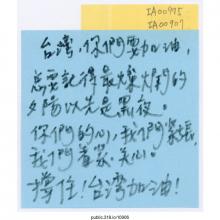 IA00975
IA00907
台灣,你們要加油,
您要記得最燦爛的
夕陽以先是黑夜。
你們的心,我們
我們看家、关心。
撐住!台灣加油!
public.318.io/10905